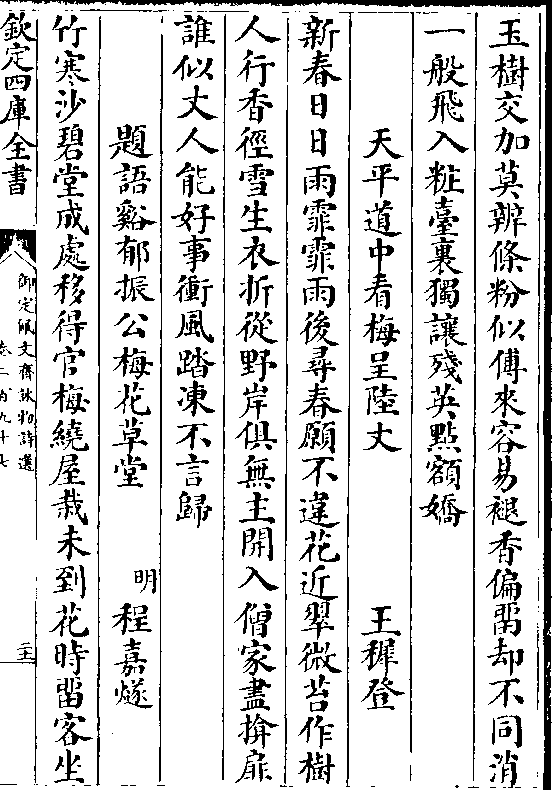 玉樹交加莫辨條粉似傅來容易褪香偏畱却不同消
一般飛入粧臺裏獨讓殘英點額嬌
天平道中看梅呈陸丈　王穉登
新春日日雨霏霏雨後尋春願不違花近翠微苔作樹
人行香徑雪生衣折從野岸俱無主開入僧家盡揜扉
誰似丈人能好事衝風踏凍不言歸
題語谿郁振公梅花草堂　明　程嘉燧
竹寒沙碧堂成處移得官梅繞屋栽未到花時畱客坐
欽定四庫全書
御定佩文齋詠物詩選
卷二百九十七